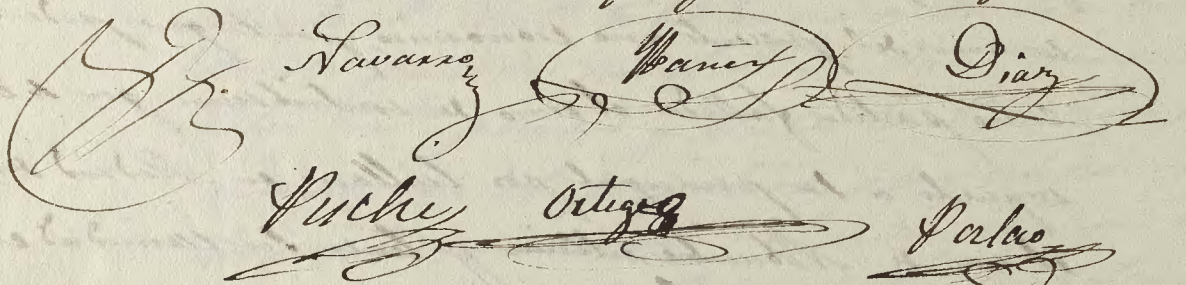 Navarro Ibañez Diaz
Puche Ortega